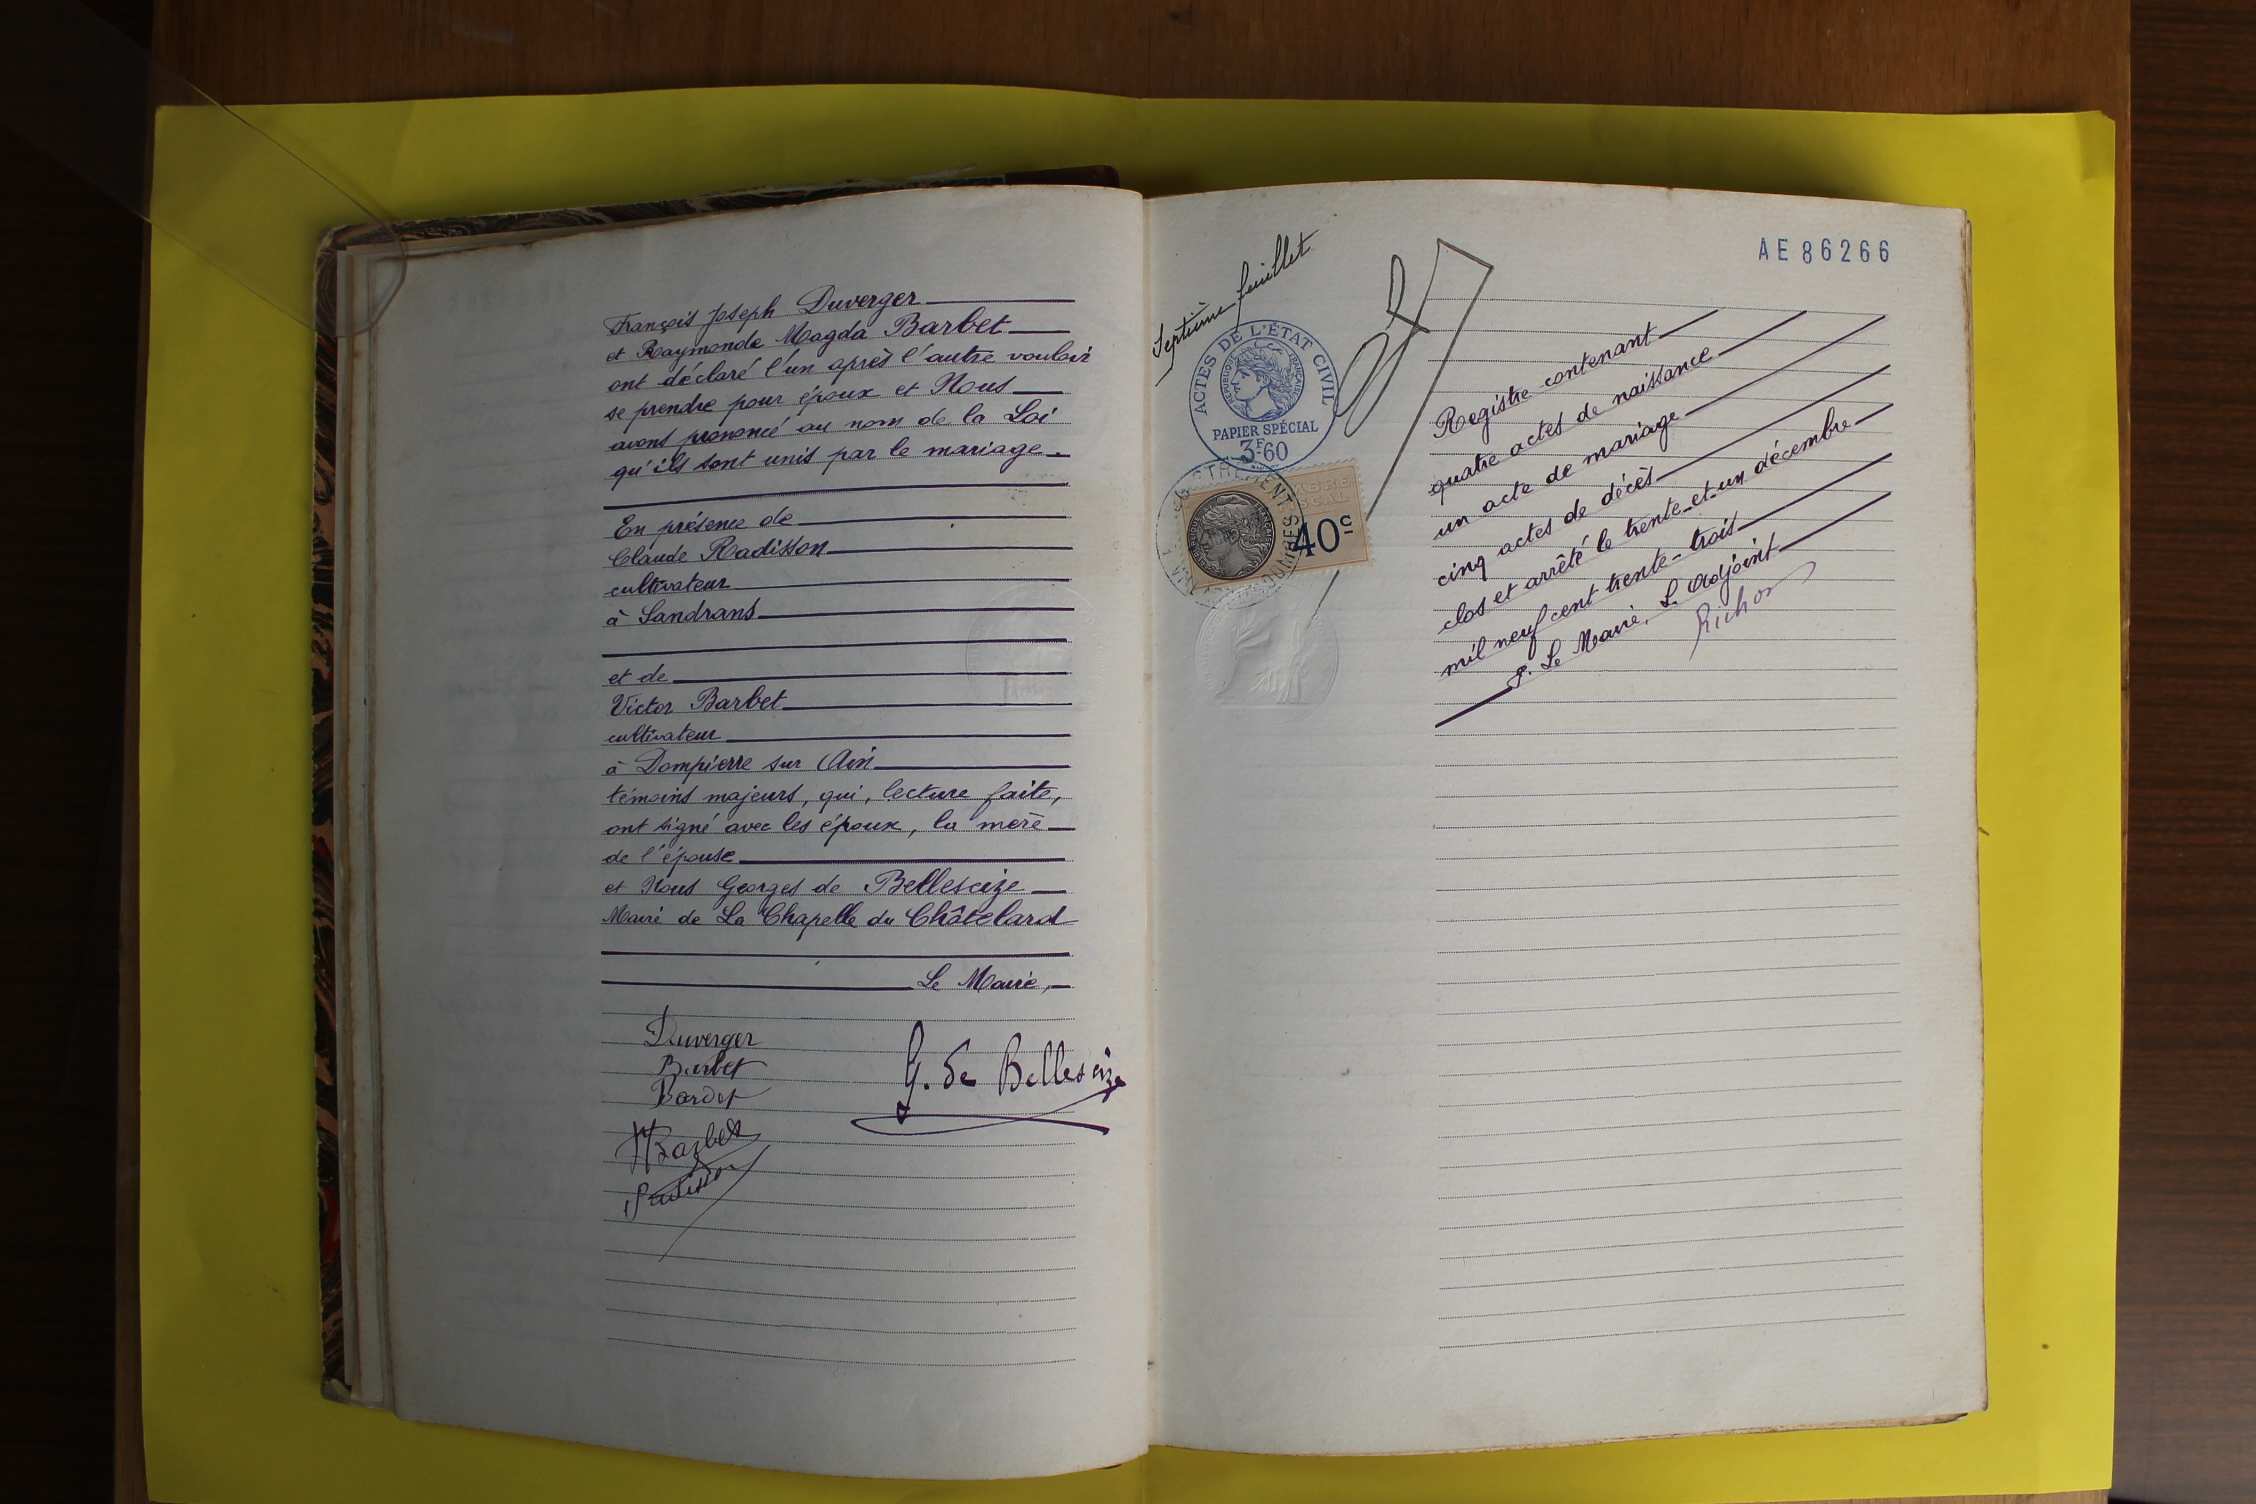 François Joseph Duverger
et Raymonde Magda Barbet
ont déclaré l'un après l'autre vouloir
se prendre pour époux et Nous
avons prononcé au nom de la Loi
qu'ils sont unis par le mariage.
En présence de
Claude Radisson
cultivateur
à Sandrans
et de
Victor Barbet
cultivateur
à Dompierre sur Ain
témoins majeurs, qui, lecture faite,
ont signé avec les époux, la mère
de l'épouse
et Nous Georges de Bellescize
Maire de La Chapelle du Châtelard
Le Maire,
Duverger
Barbet
Bardet
Barbet
Radisson
G. de Bellescize
Septième feuillet
ACTES DE L'ÉTAT CIVIL
RÉPUBLIQUE FRANÇAISE
PAPIER SPÉCIAL
3F60
40c
AE 86266
Registre contenant
quatre actes de naissance
un acte de mariage
cinq actes de décès
clos et arrêté le trente-et-un décembre
mil neuf cent trente-trois
p. Le Maire, L'Adjoint
Richon